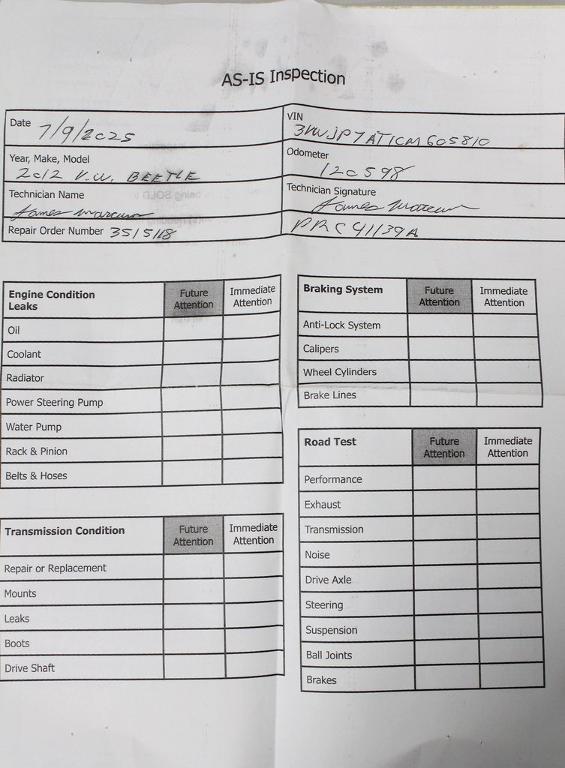 AS-IS Inspection
Date 7/9/2025
VIN 3VWJP7AT1CM605810
Year, Make, Model 2012 V.W. BEETLE
Odometer 120598
Technician Name
Technician Signature
Repair Order Number 3515118
PRC 41139A
Engine Condition Leaks Future Attention Immediate Attention
Oil
Coolant
Radiator
Power Steering Pump
Water Pump
Rack & Pinion
Belts & Hoses
Braking System Future Attention Immediate Attention
Anti-Lock System
Calipers
Wheel Cylinders
Brake Lines
Transmission Condition Future Attention Immediate Attention
Repair or Replacement
Mounts
Leaks
Boots
Drive Shaft
Road Test Future Attention Immediate Attention
Performance
Exhaust
Transmission
Noise
Drive Axle
Steering
Suspension
Ball Joints
Brakes